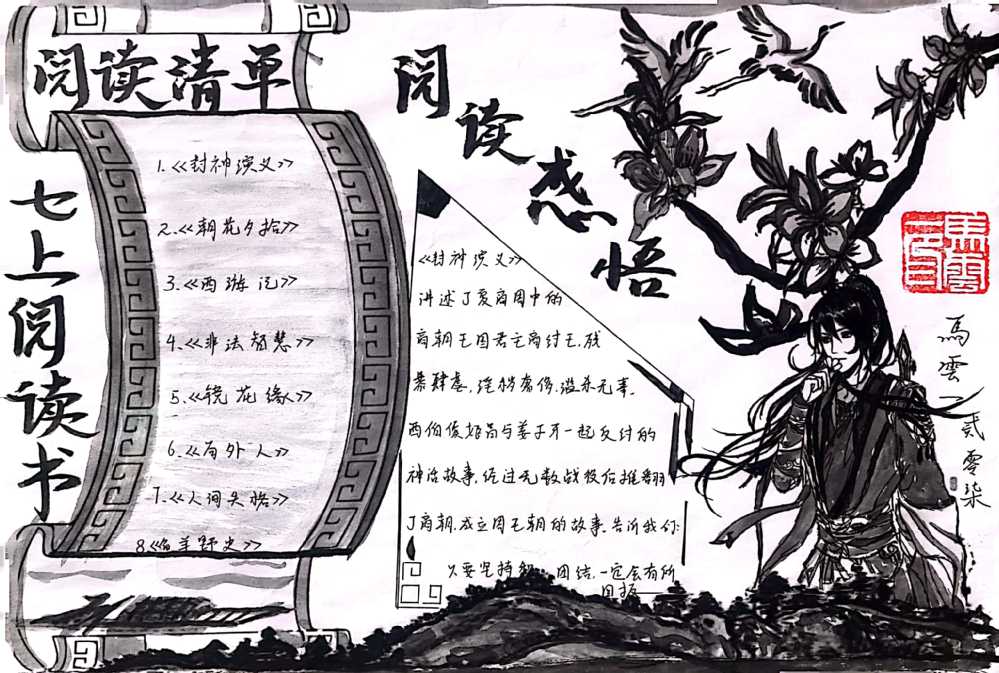 阅读清单
七上阅读书
1.《封神演义》
2.《朝花夕拾》
3.《西游记》
4.《非法智慧》
5.《镜花缘》
6.《局外人》
7.《人间失格》
8.《白羊野史》
阅读感悟
《封神演义》
讲述了爱商周中的
商朝王国君主商纣王，残
暴肆虐，淫秽奢侈，滥杀无辜，
西伯侯姬昌与姜子牙一起反纣的
神话故事，经过无数战役后推翻
了商朝，成立周王朝的故事，告诉我们
只要坚持 团结，一定会有所
回报
馬雲
馬雲一贰零柒